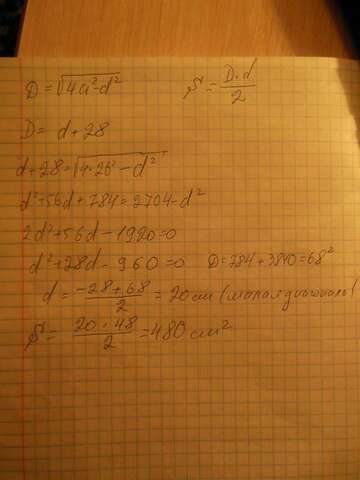 D = √4a²-d² S = D·d/2
D = d+28
d+28 = √4·26² - d²
d²+56d+784=2704-d²
2d²+56d-1920=0
d²+28d-960=0 D=784+3840=68²
d = -28+68/2 = 20 см (малая диагональ)
S = 20·48/2 = 480 см²